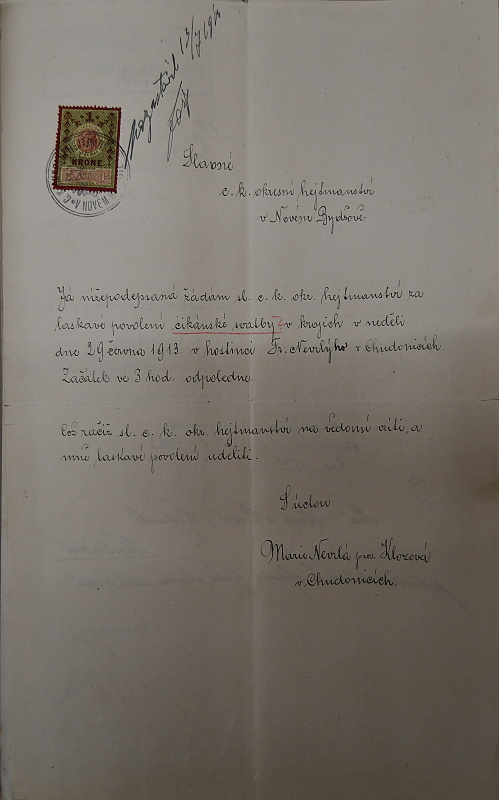 13/7 191
1
KRONE
V NOVÉM
Slavné
c. k. okresní hejtmanství
v Novém Bydžově.
Já nížepodepsaná žádám sl. c. k. okr. hejtmanství za
laskavé povolení cikánské svatby? v krojích v neděli
dne 29 června 1913. v hostinci Fr. Nevrlý v Chudonicích.
Začátek ve 3 hod. odpoledne.
Což račiž sl. c. k. okr. hejtmanství na vědomí vzíti, a
mně, laskavé povolení uděliti.
S úctou
Marie Nevrlá prov. Klozová
v Chudonicích.